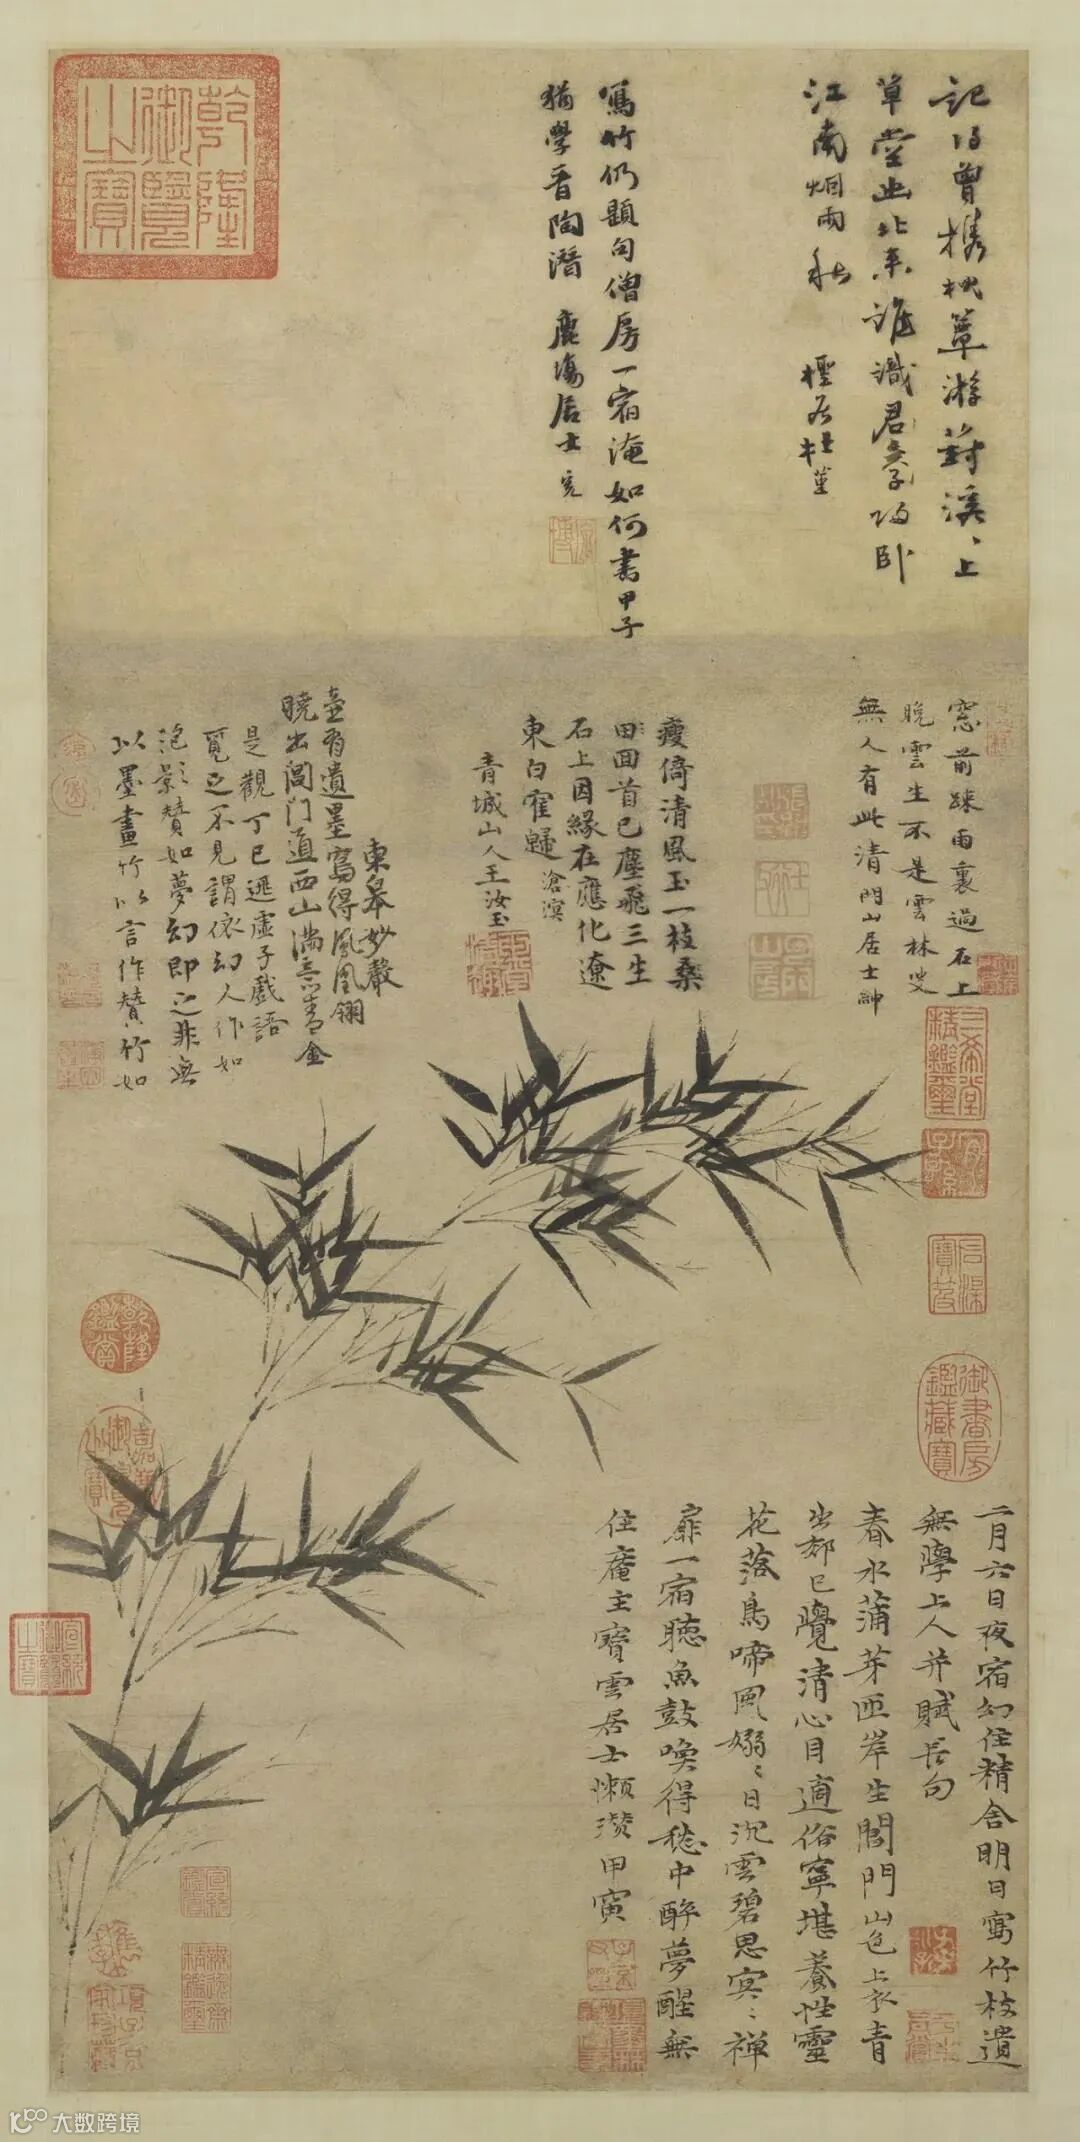 記得曾携枕簟游蓴溪溪上
草堂幽北來誰識君夢歸臥
江南烟雨秋
寫竹仍題句僧房一宿淹如何書甲子
猶學晉陶潛 鹿場居士寬
窓前踈雨裏過石上
晚雲生不是雲林叟
無人有此清 門山居士紳
瘦倚清風玉一枝桑
田回首已塵飛三生
石上因緣在應化遼
東白寉歸 滄溟
青城山人王汝玉
東皋妙聲
壺有遺墨寫得鳳凰翎
曉出閶門道西山滿意青金
是觀丁已逃虛子戲語
覓之不見謂依幻人作如
泡影贊如夢幻即之非無
以墨畫竹以言作贊竹如
二月六日夜宿幻住精舍明日寫竹枝遺
無學上人并賦長句
春水蒲芽匝岸生閶門山色上衣青
出郊已覺清心目適俗寧堪養性靈
花落鳥啼風嫋嫋日沉雲碧思冥冥禪
扉一宿聽魚鼓喚得愁中醉夢醒無
住庵主寶雲居士懶瓚甲寅
乾隆御覽之寶
三希堂精鑑璽
宜子孫
石渠寶笈
御書房鑑藏寶
乾隆鑑賞
嘉慶御覽之寶
宣統御覽之寶
大数跨境